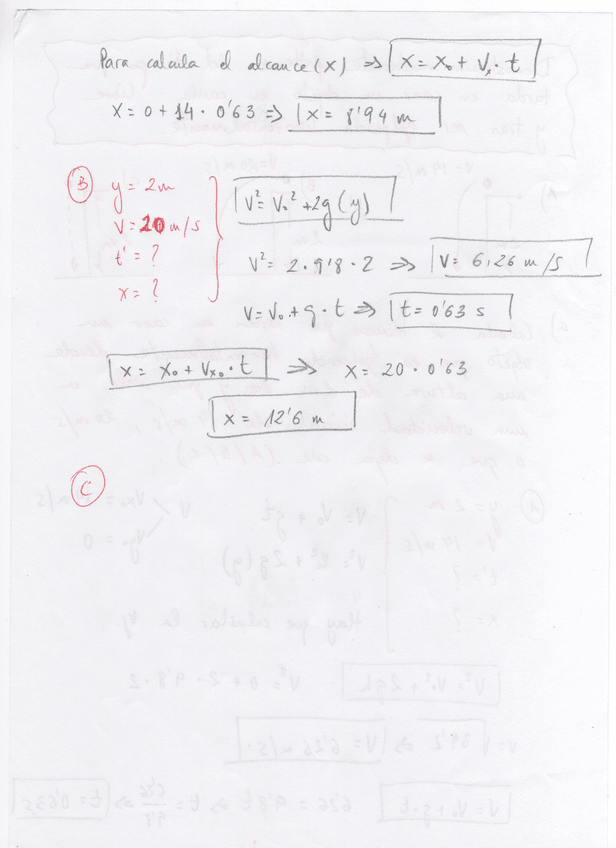 Para calcula el alcance (x) => x = x₀ + vₓ · t
x = 0 + 14 · 0'63 => x = 8'94 m
B y = 2m v² = v₀² + 2g (y)
v = 20 m/s
t' = ? v² = 2 · 9'8 · 2 => v = 6,26 m/s
x = ? v = v₀ + g · t => t = 0'63 s
x = x₀ + vₓ₀ · t => x = 20 · 0'63
x = 12'6 m
C